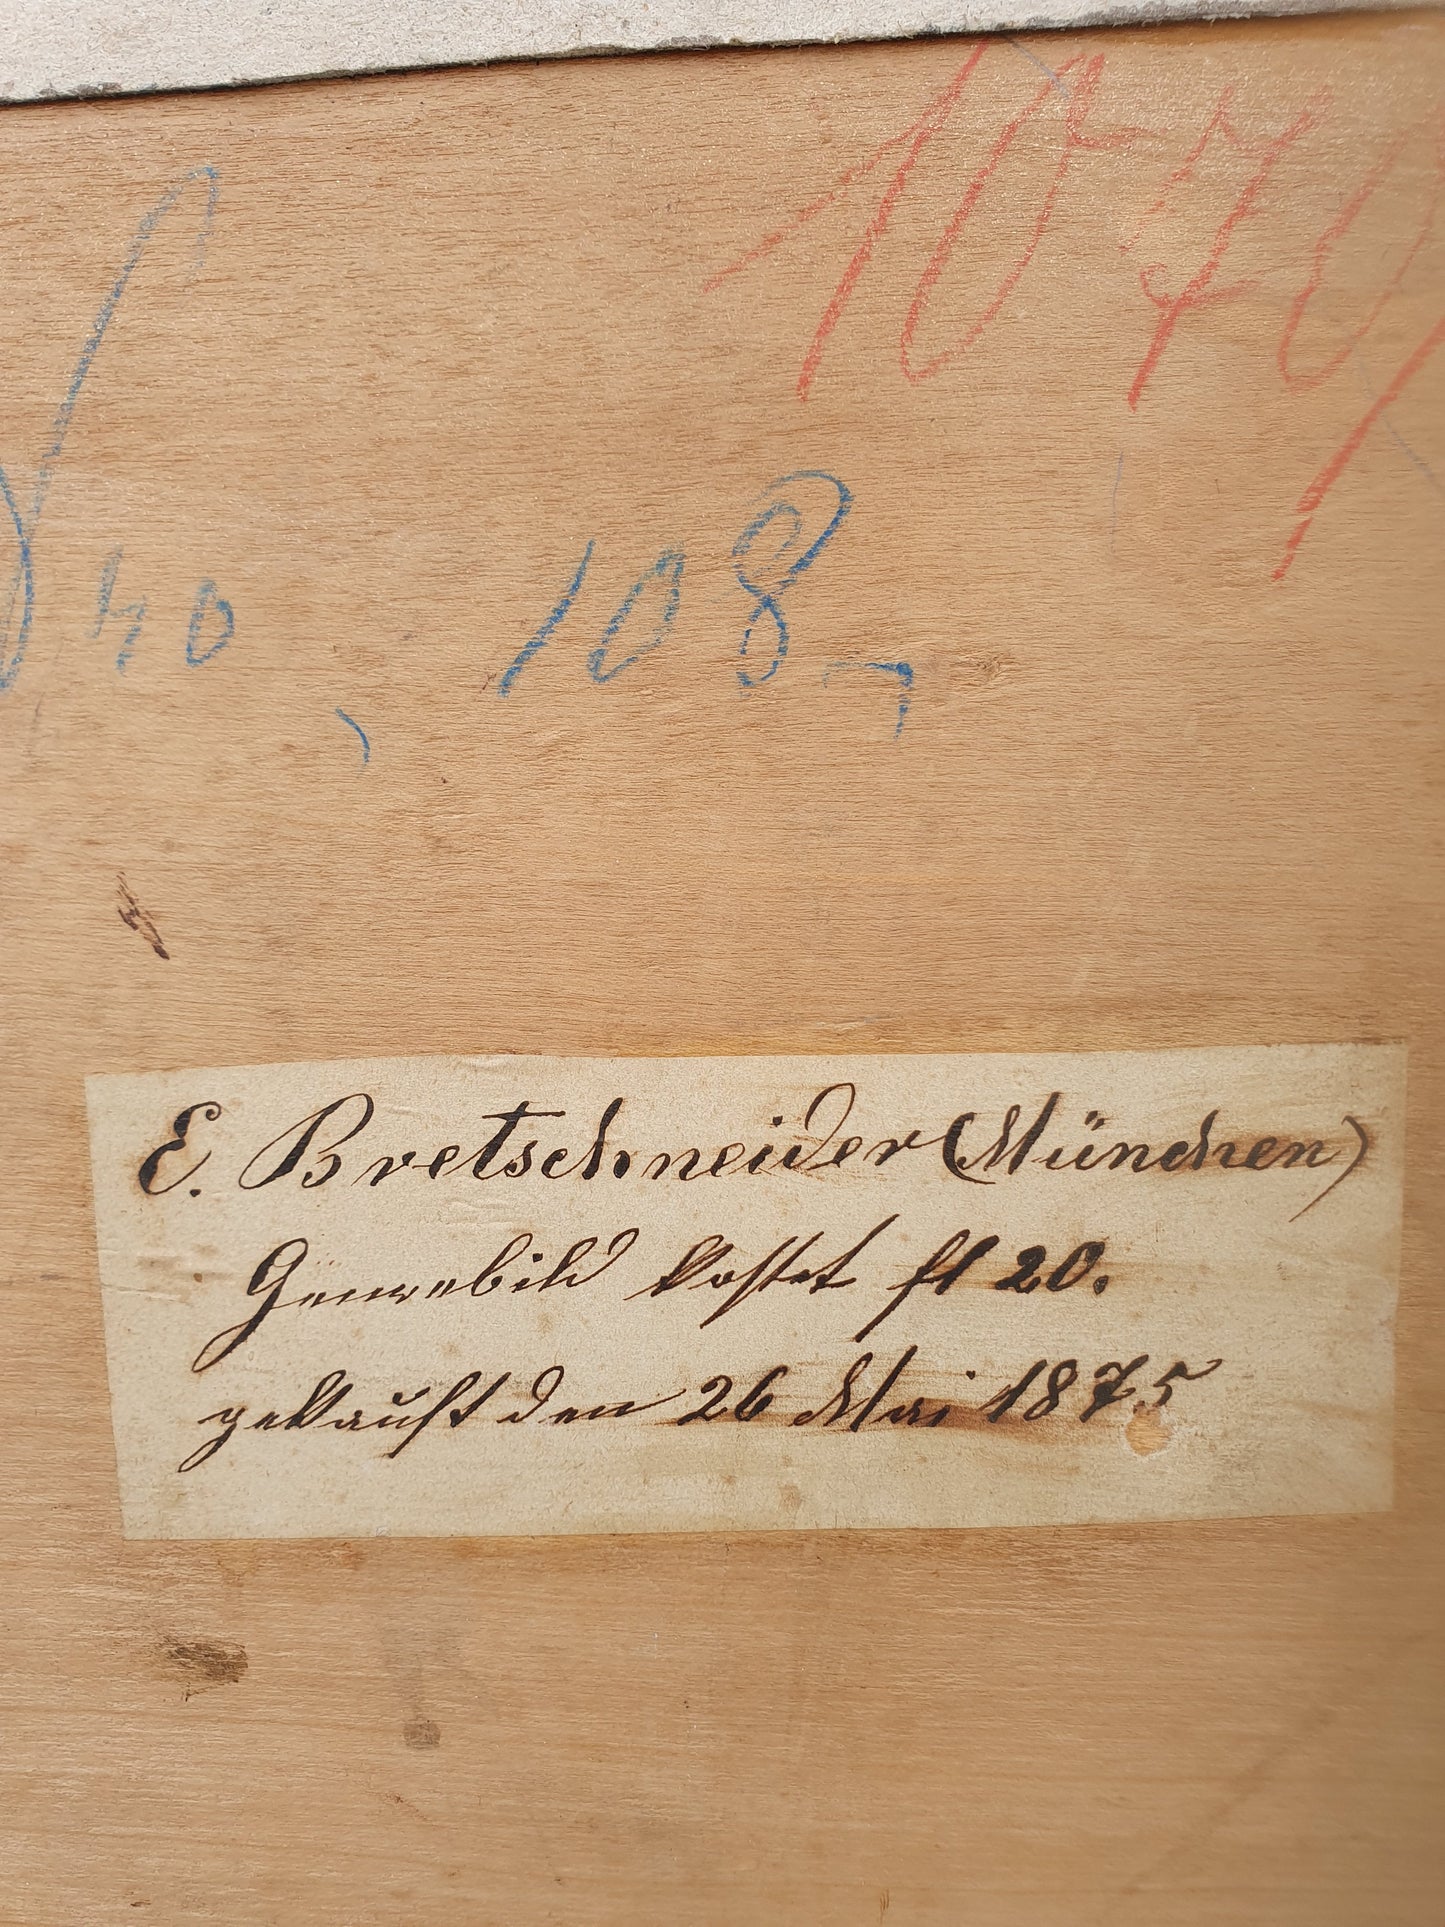 107
40 108
E. Bretschneider (München)
Genrebild kostet fl 20.
gekauft den 26 Mai 1875